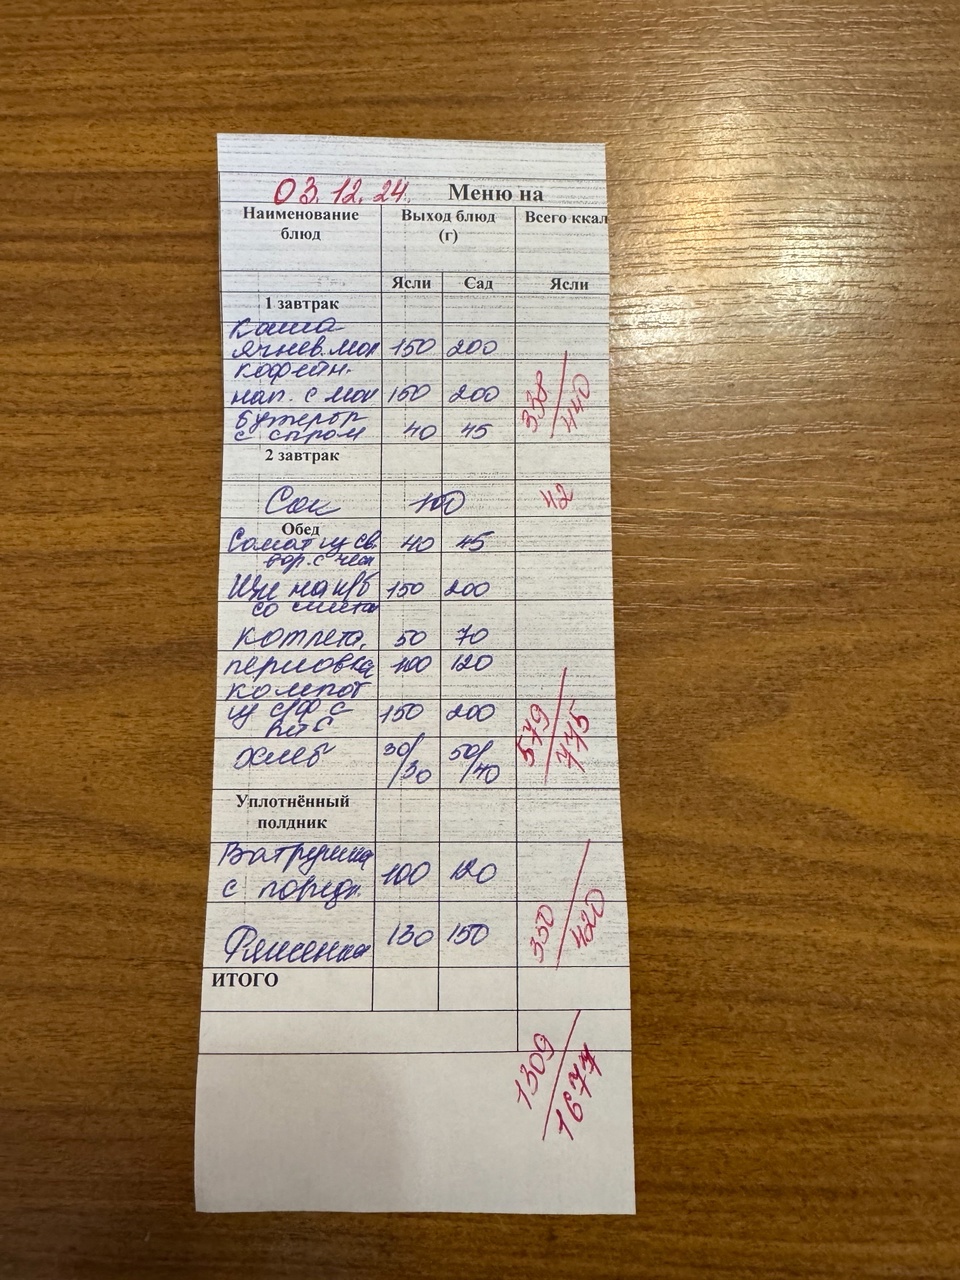 03.12.24. Меню на
Наименование блюд Выход блюд (г) Всего ккал
Ясли Сад Ясли
1 завтрак
Каша
ячнев. мол 150 200
кофейн.
нап. с мол 150 200 338/440
бутербр
с сыром 40 45
2 завтрак
Сок 100 42
Обед
Салат из св. 40 45
вор. с чесн
Щи на к/б 150 200
со смета
котлета, 50 70
перловка 100 120
компот
из с/ф с 150 200 579/775
вит С
Хлеб 30/30 50/40
Уплотнённый
полдник
Ватрушка
с повидл. 100 120
Ряженка 130 150 350/420
ИТОГО
1309/1677